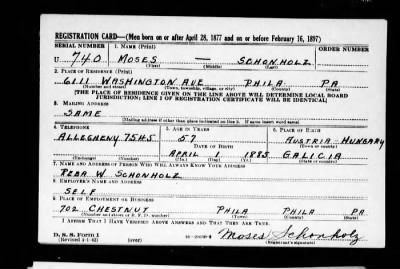 REGISTRATION CARD—(Men born on or after April 28, 1877 and on or before February 16, 1897)
SERIAL NUMBER 1. NAME (Print) ORDER NUMBER
U 740 MOSES — SCHONHOLZ
(First) (Middle) (Last)
2. PLACE OF RESIDENCE (Print)
6111 WASHINGTON AVE PHILA. PA
(Number and street) (Town, township, village, or city) (County) (State)
[THE PLACE OF RESIDENCE GIVEN ON THE LINE ABOVE WILL DETERMINE LOCAL BOARD
JURISDICTION; LINE 1 OF REGISTRATION CERTIFICATE WILL BE IDENTICAL]
3. MAILING ADDRESS
SAME
[Mailing address if other than place indicated on line 2. If same insert word same]
4. TELEPHONE 5. AGE IN YEARS 6. PLACE OF BIRTH
ALLEGHENY 7545 57 AUSTRIA-HUNGARY
DATE OF BIRTH (Town or county)
APRIL 1 1885 GALICIA
(Exchange) (Number) (Mo.) (Day) (Yr.) (State or country)
7. NAME AND ADDRESS OF PERSON WHO WILL ALWAYS KNOW YOUR ADDRESS
REBA W. SCHONHOLZ
8. EMPLOYER'S NAME AND ADDRESS
SELF
9. PLACE OF EMPLOYMENT OR BUSINESS
702 CHESTNUT PHILA PHILA PA
(Number and street or R. F. D. number) (Town) (County) (State)
I AFFIRM THAT I HAVE VERIFIED ABOVE ANSWERS AND THAT THEY ARE TRUE.
D. S. S. Form 1
(Revised 4-1-42) (over) Moses Schonholz
(Registrant's signature)